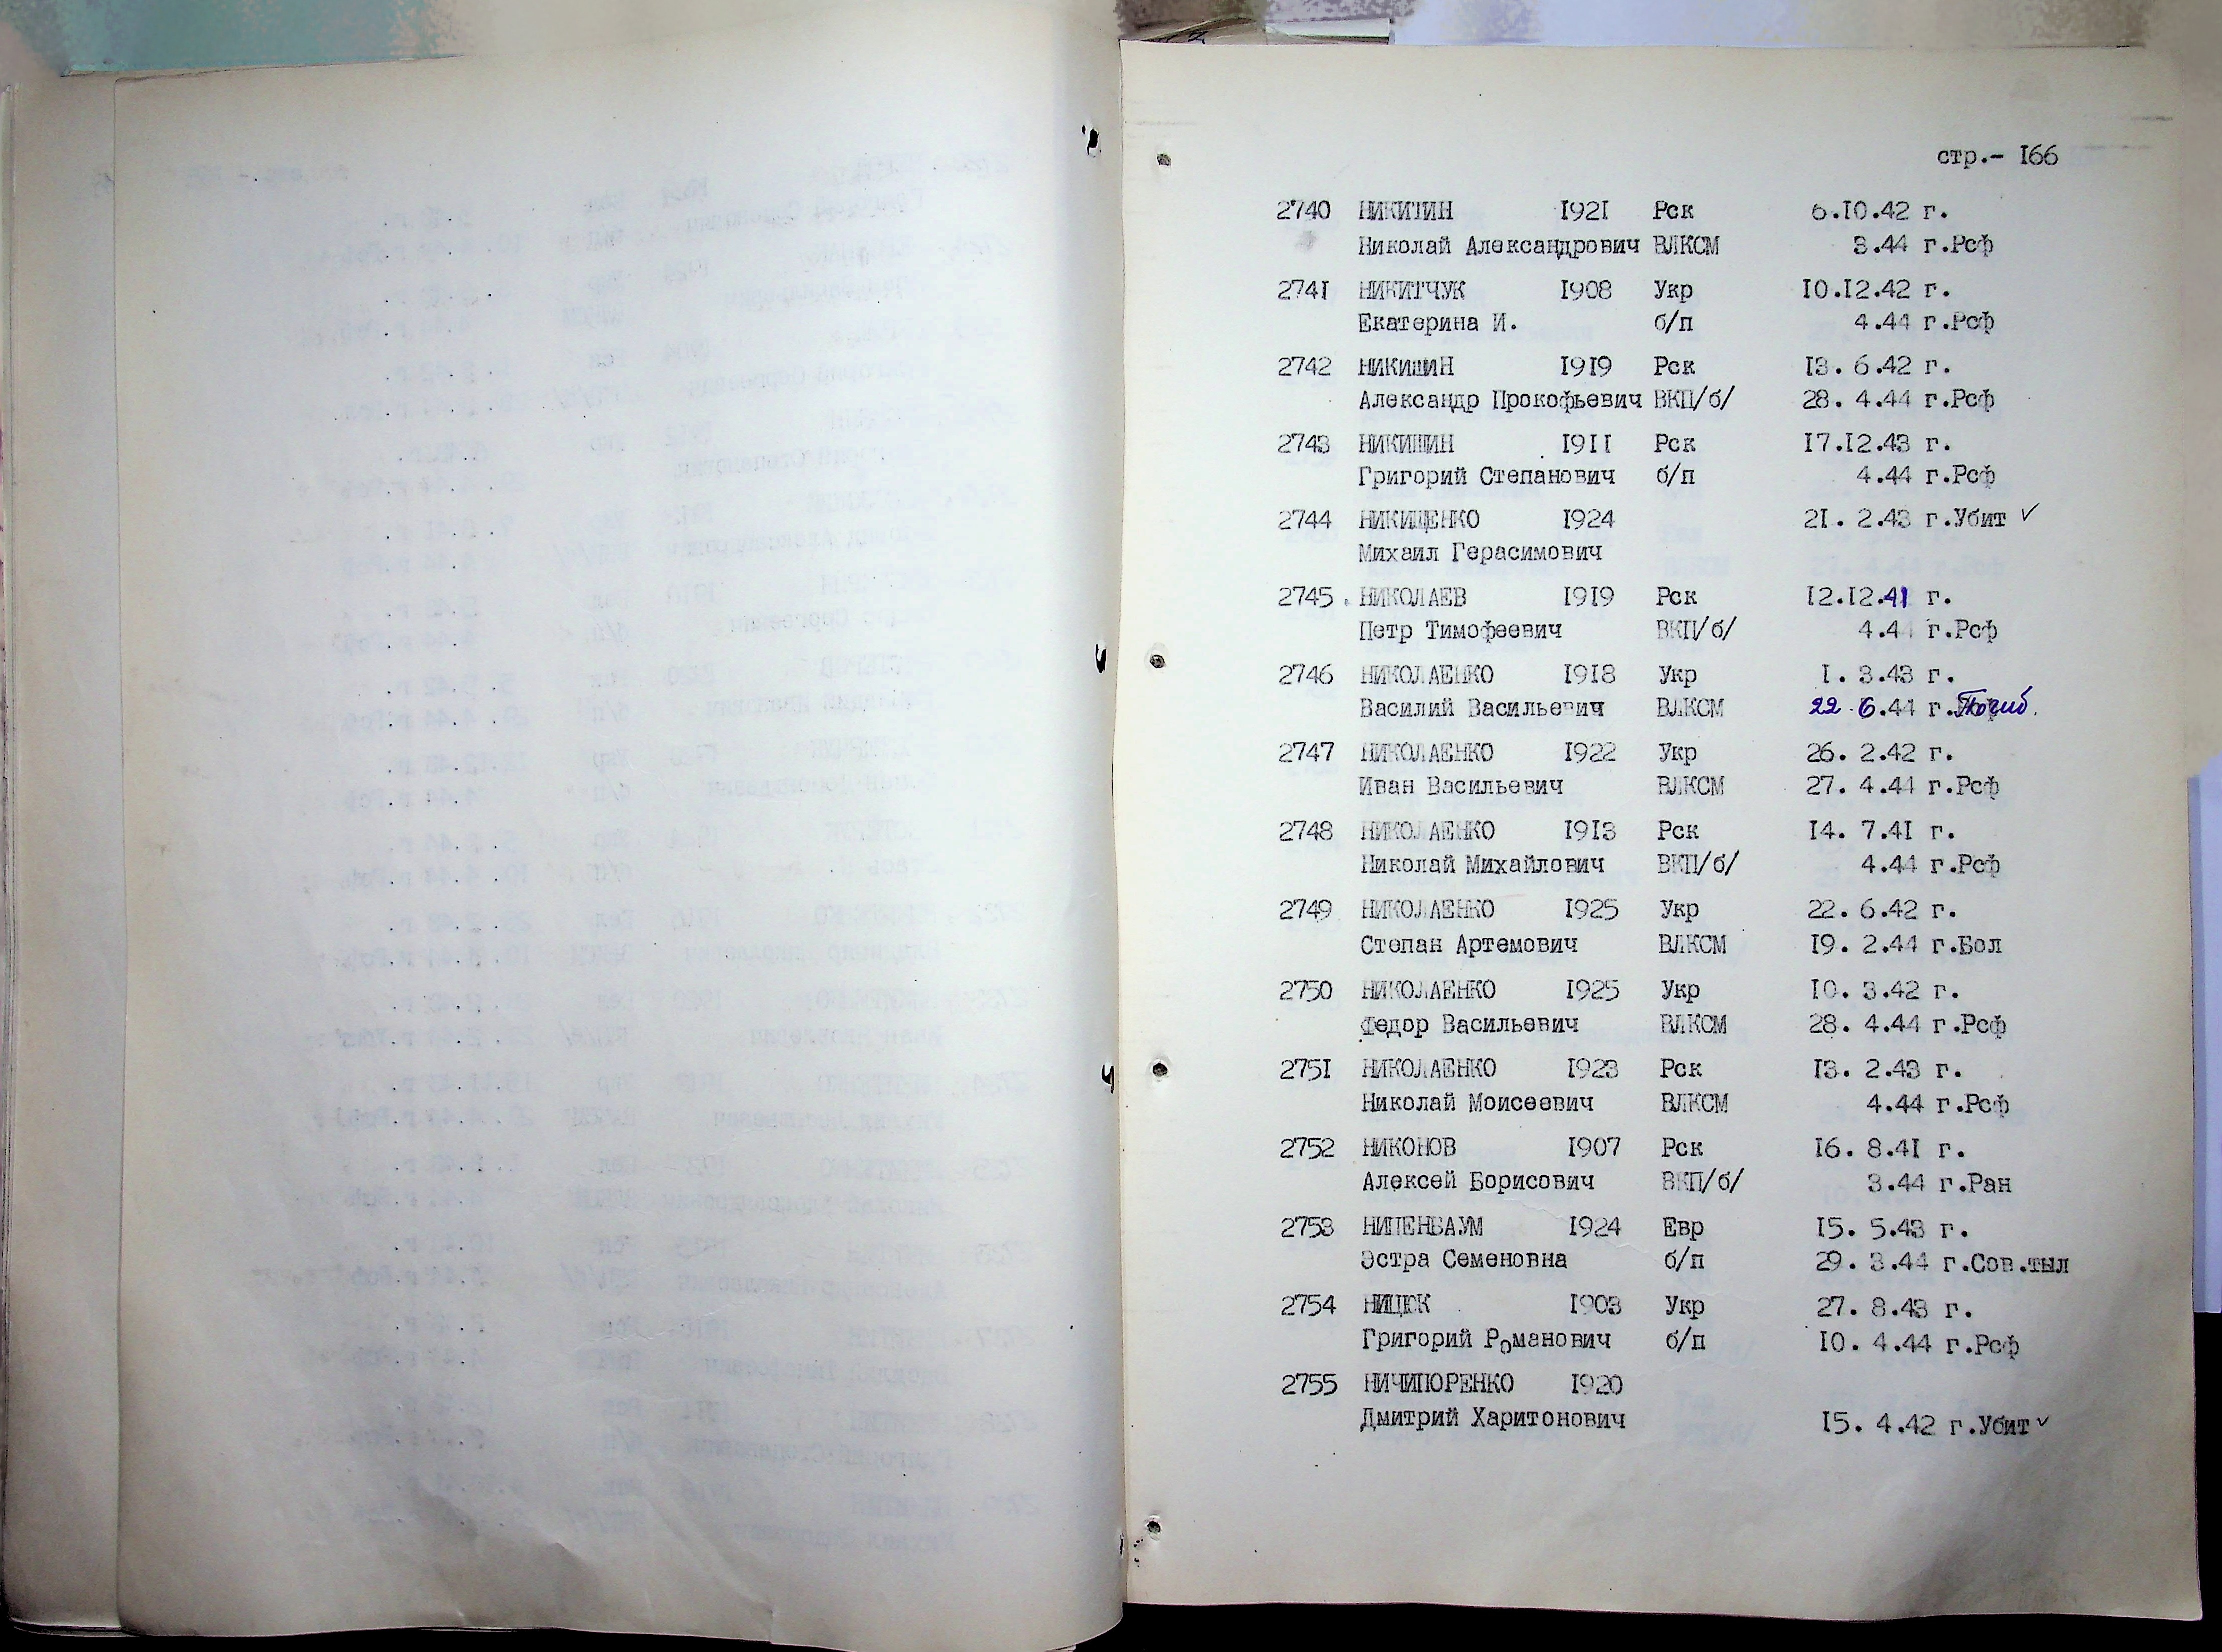 стр.- 166
2740 НИКИТИН 1921 Рск 6.10.42 г.
Николай Александрович ВЛКСМ 3.44 г.Рсф
2741 НИКИТЧУК 1908 Укр 10.12.42 г.
Екатерина И. б/п 4.44 г.Рсф
2742 НИКИШИН 1919 Рск 13. 6.42 г.
Александр Прокофьевич ВКП/б/ 28. 4.44 г.Рсф
2743 НИКИШИН 1911 Рск 17.12.43 г.
Григорий Степанович б/п 4.44 г.Рсф
2744 НИКИЩЕНКО 1924 21. 2.43 г.Убит ✓
Михаил Герасимович
2745 НИКОЛАЕВ 1919 Рск 12.12.41 г.
Петр Тимофеевич ВКП/б/ 4.44 г.Рсф
2746 НИКОЛАЕНКО 1918 Укр 1. 3.43 г.
Василий Васильевич ВЛКСМ 22 6.44 г.Погиб.
2747 НИКОЛАЕНКО 1922 Укр 26. 2.42 г.
Иван Васильевич ВЛКСМ 27. 4.44 г.Рсф
2748 НИКОЛАЕНКО 1913 Рск 14. 7.41 г.
Николай Михайлович ВКП/б/ 4.44 г.Рсф
2749 НИКОЛАЕНКО 1925 Укр 22. 6.42 г.
Степан Артемович ВЛКСМ 19. 2.44 г.Бол
2750 НИКОЛАЕНКО 1925 Укр 10. 3.42 г.
Федор Васильевич ВЛКСМ 28. 4.44 г.Рсф
2751 НИКОЛАЕНКО 1923 Рск 13. 2.43 г.
Николай Моисеевич ВЛКСМ 4.44 г.Рсф
2752 НИКОНОВ 1907 Рск 16. 8.41 г.
Алексей Борисович ВКП/б/ 3.44 г.Ран
2753 НИПЕНБАУМ 1924 Евр 15. 5.43 г.
Эстра Семеновна б/п 29. 3.44 г.Сов.тыл
2754 НИЦЕК 1903 Укр 27. 8.43 г.
Григорий Романович б/п 10. 4.44 г.Рсф
2755 НИЧИПОРЕНКО 1920
Дмитрий Харитонович 15. 4.42 г.Убит ✓